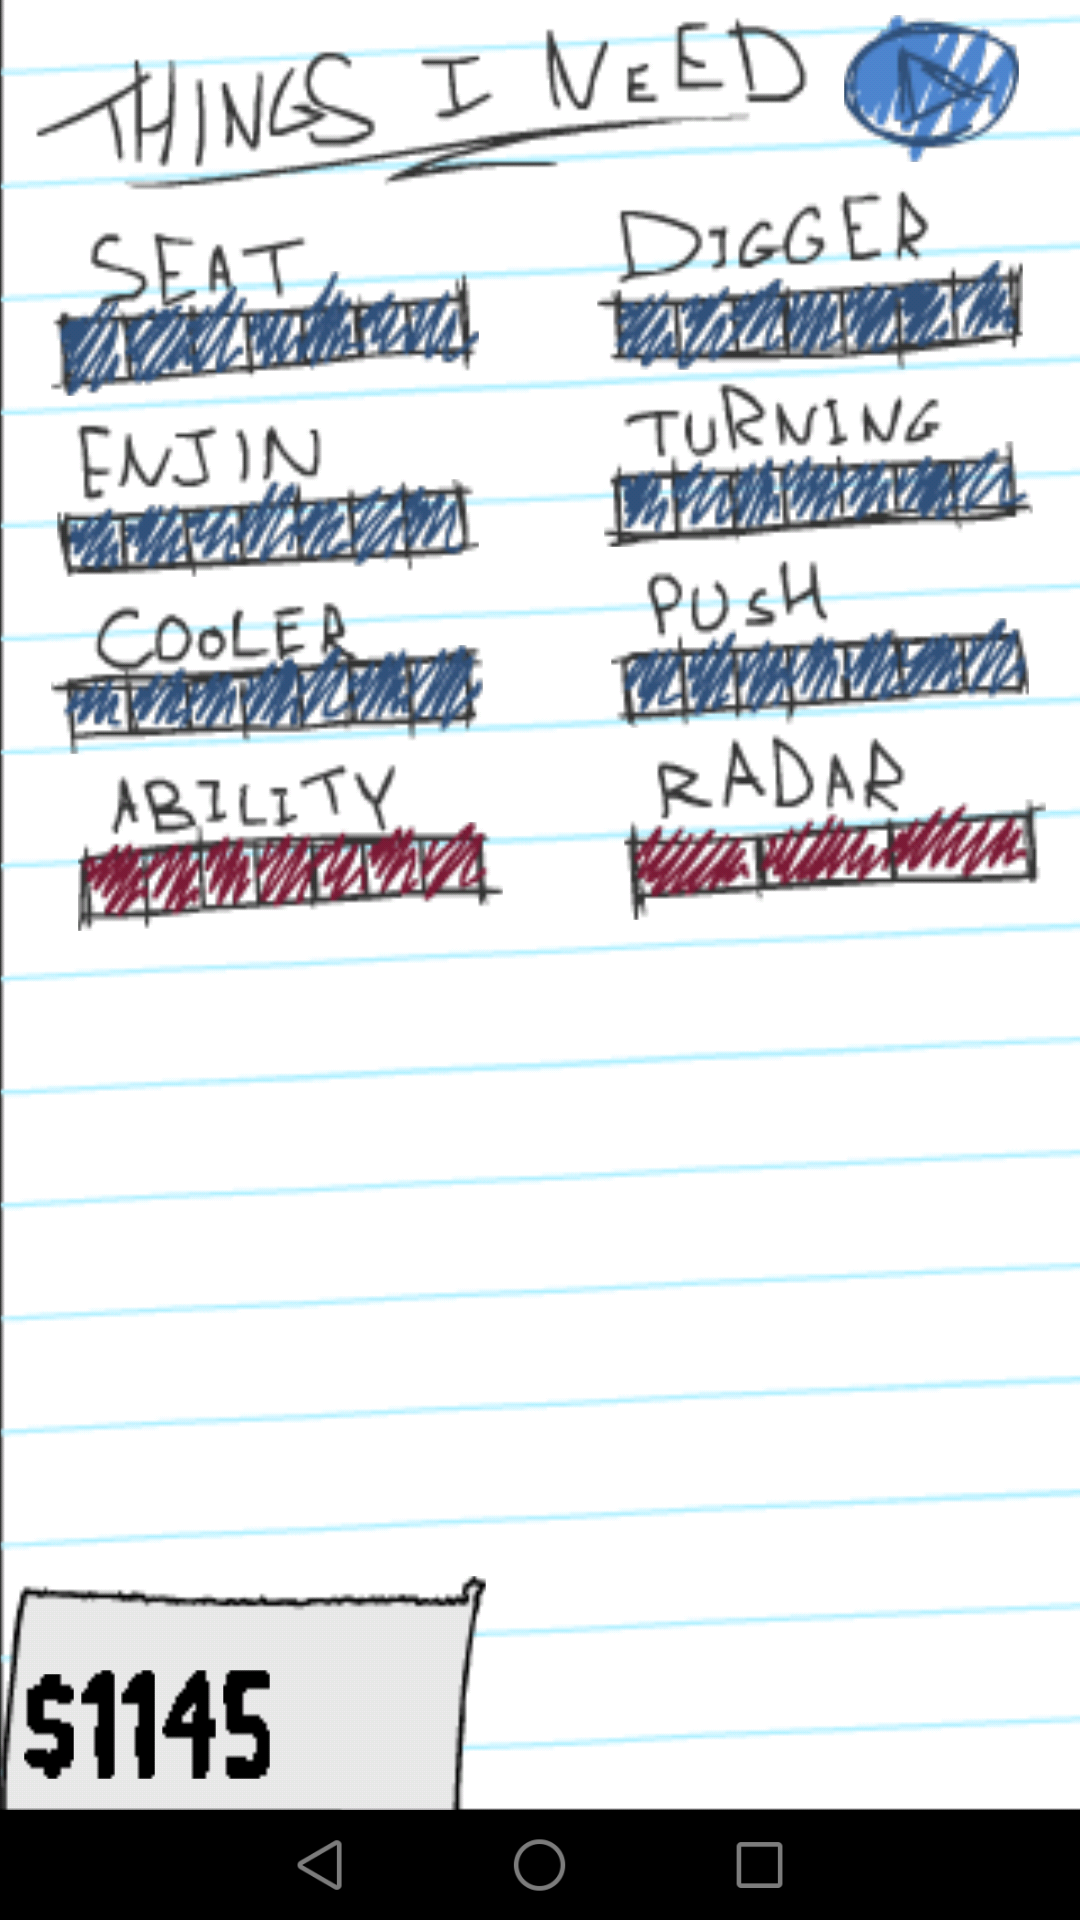 THINGS I NEED
SEAT DIGGER
ENJIN TURNING
COOLER PUSH
ABILITY RADAR
$1145